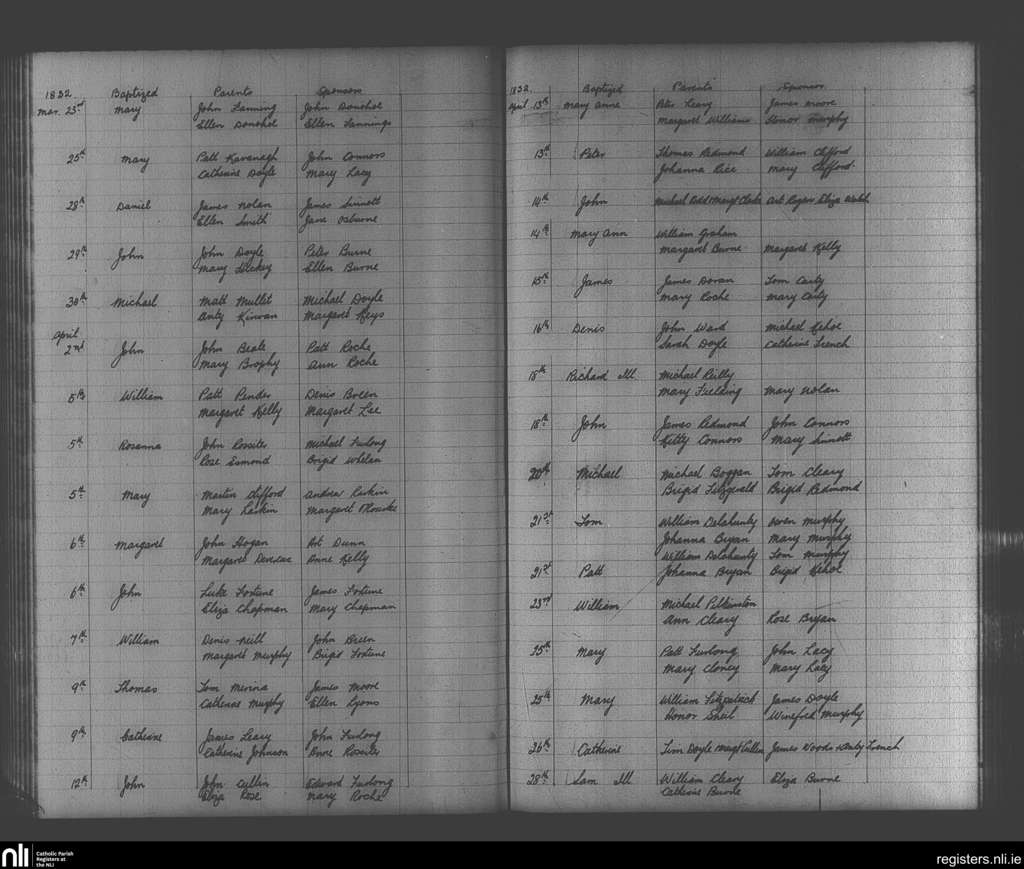 1832. Baptized Parents Sponsors
Mar. 23rd Mary John Fanning John Donohoe
Ellen Donohoe Ellen Fanning
25th Mary Patt Kavanagh John Connors
Catherine Doyle Mary Lacy
28th Daniel James Nolan James Sinnott
Ellen Smith Jane Osburne
29th John John Doyle Peter Burne
Mary Hickey Ellen Burne
30th Michael Matt Mullet Michael Doyle
Anty Kirwan Margaret Keys
April
2nd John John Beale Patt Roche
Mary Brophy Ann Roche
5th William Patt Pender Denis Breen
Margaret Kelly Margaret Lee
5th Rosanna John Rossiter Michael Furlong
Rose Esmond Brigid Whelan
5th Mary Martin Clifford Andrew Larkin
Mary Larkin Margaret
6th Margaret John Hogan Art Dunn
Margaret Devereux Anne Kelly
6th John Luke Fortune James Fortune
Eliza Chapman Mary Chapman
7th William Denis Neill John Breen
Margaret Murphy Brigid Fortune
9th Thomas Tom James Moore
Catherine Murphy Ellen Lyons
9th Catherine James Leary John Furlong
Catherine Johnson Anne Rossiter
12th John John Cullen Edward Furlong
Eliza Rose Mary Roche
1832. Baptized Parents Sponsors
April 13th Mary Anne Peter Leary James Moore
Margaret Williams Honor Murphy
13th Peter Thomas Redmond William Clifford
Johanna Rice Mary Clifford
14th John Michael Art Rogers Eliza Walsh
14th Mary Ann William Graham
Margaret Burne Margaret Kelly
15th James James Doran Tom Carty
Mary Roche Mary Carty
16th Denis John Ward Michael Kehoe
Sarah Doyle Catherine French
18th Richard Ill. Michael Reilly
Mary Fielding Mary Nolan
18th John James Redmond John Connors
Kitty Connors Mary Sinnott
20th Michael Michael Boggan Tom Cleary
Brigid Fitzgerald Brigid Redmond
21st Tom William Delahunty Owen Murphy
Johanna Bryan Mary Murphy
William Delahunty Tom Murphy
21st Patt Johanna Bryan Brigid Kehoe
23rd William Michael Pilkinton
Ann Cleary Rose Bryan
25th Mary Patt Furlong John Lacy
Mary Cloney Mary Lacy
25th Mary William Fitzpatrick James Doyle
Honor Sheil Wineford Murphy
26th Catherine Tim Doyle Margt Cullen James Woods & Anty French
28th Sam Ill. William Cleary Eliza Burne
Catherine Burne
nli Catholic Parish
Registers at
the NLI
registers.nli.ie